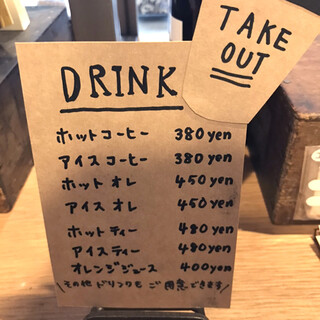 TAKE
OUT
DRINK
ホットコーヒー 380yen
アイスコーヒー 380yen
ホットオレ 450yen
アイスオレ 450yen
ホットティー 480yen
アイスティー 480yen
オレンジジュース 400yen
\その他ドリンクもご用意できます/